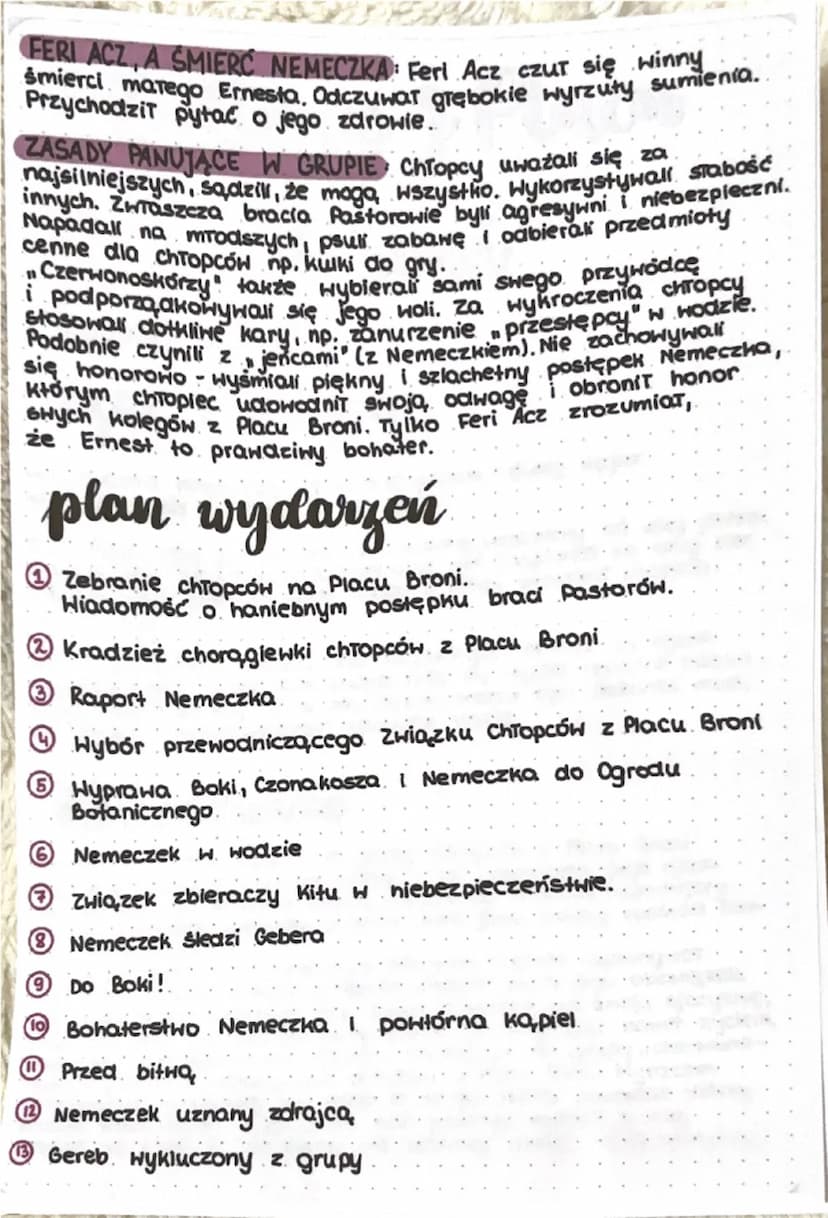 FERI ACZ, A ŚMIERĆ NEMECZKA: Feri Acz czuł się winny
śmierci małego Ernesta. Odczuwał głębokie wyrzuty sumienia.
Przychodził pytać o jego zdrowie.
ZASADY PANUJĄCE W GRUPIE: Chłopcy uważali się za
najsilniejszych, sądzili, że mogą wszystko. Wykorzystywali słabość
innych. Zwłaszcza bracia Pastorowie byli agresywni i niebezpieczni.
Napadali na młodszych, psuli zabawę i odbierali przedmioty
cenne dla chłopców np. kulki do gry.
"Czerwonoskórzy" także wybierali sami swego przywódcę
i podporządkowywali się jego woli. Za wykroczenia chłopcy
stosowali dotkliwe kary, np. zanurzenie "przestępcy" w wodzie.
Podobnie czynili z "jeńcami" (z Nemeczkiem). Nie zachowywali
się honorowo - wyśmiali piękny i szlachetny postępek Nemeczka,
którym chłopiec udowodnił swoją odwagę i obronił honor
swych kolegów z Placu Broni. Tylko Feri Acz zrozumiał,
że Ernest to prawdziwy bohater.
plan wydarzeń
1 Zebranie chłopców na Placu Broni.
Wiadomość o haniebnym postępku braci Pastorów.
2 Kradzież chorągiewki chłopców z Placu Broni
3 Raport Nemeczka
4 Wybór przewodniczącego Związku Chłopców z Placu Broni
5 Wyprawa Boki, Czonakosza i Nemeczka do Ogrodu
Botanicznego
6 Nemeczek w wodzie
7 Związek zbieraczy Kitu w niebezpieczeństwie.
8 Nemeczek śledzi Gebera
9 Do Boki!
10 Bohaterstwo Nemeczka i powtórna kąpiel
11 Przed bitwą
12 Nemeczek uznany zdrajcą
13 Gereb wykluczony z grupy